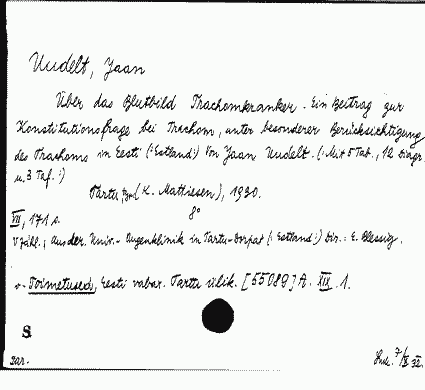 Uudelt, Jaan
Über das Blutbild Trachomkranker. Ein Beitrag zur
Konstitutionsfrage bei Trachom, unter besonderer Berücksichtigung
des Trachoms in Eesti (:Estland:) Von Jaan Uudelt. (:Mit 5 Tab., 12 Diagr.
u. 3 Taf.:)
Tartu, (K. Mattiesen), 1930.
8°
VII, 171 s.
Aus der. Univ.- Augenklinik in Tartu-Dorpat (:Estland:) Dir.: E. Blessig.
Toimetused, Eesti vabar. Tartu ülik. [55089] A. XIX. 1.
S